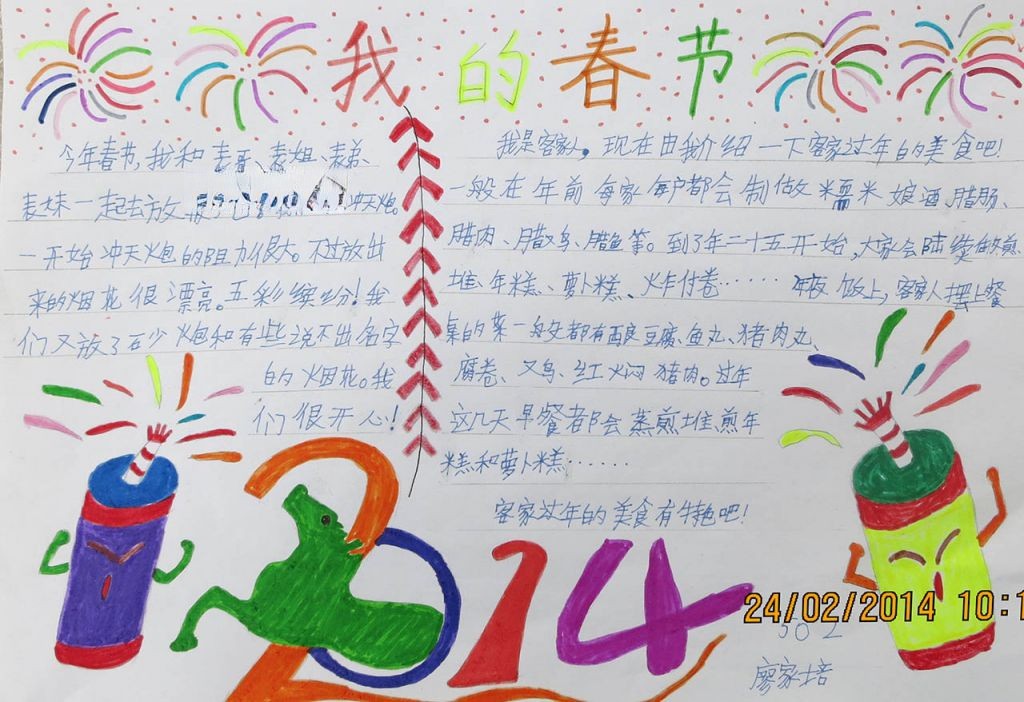 我的春节
今年春节,我和表哥、表姐、表弟、
表妹一起去放冲天炮。
一开始冲天炮的阻力很大。不过放出
来的烟花很漂亮。五彩缤纷!我
们又放了石少炮和有些说不出名字
的烟花。我
们很开心!
我是客家人,现在由我介绍一下客家过年的美食吧!
一般在年前每家每户都会制做糯米娘酒、腊肠、
腊肉、腊鸡、腊鱼等。到了年二十五开始,大家会陆续做煎
堆、年糕、萝卜糕、炸付卷……年夜饭上,客家人摆上餐
桌的菜一般都有酿豆腐、鱼丸、猪肉丸、
腐卷、鸡、红火焖猪肉。过年
这几天早餐都会蒸煎堆、煎年
糕和萝卜糕……
客家过年的美食有特色吧!
2014
24/02/2014 10:1
502
廖家培